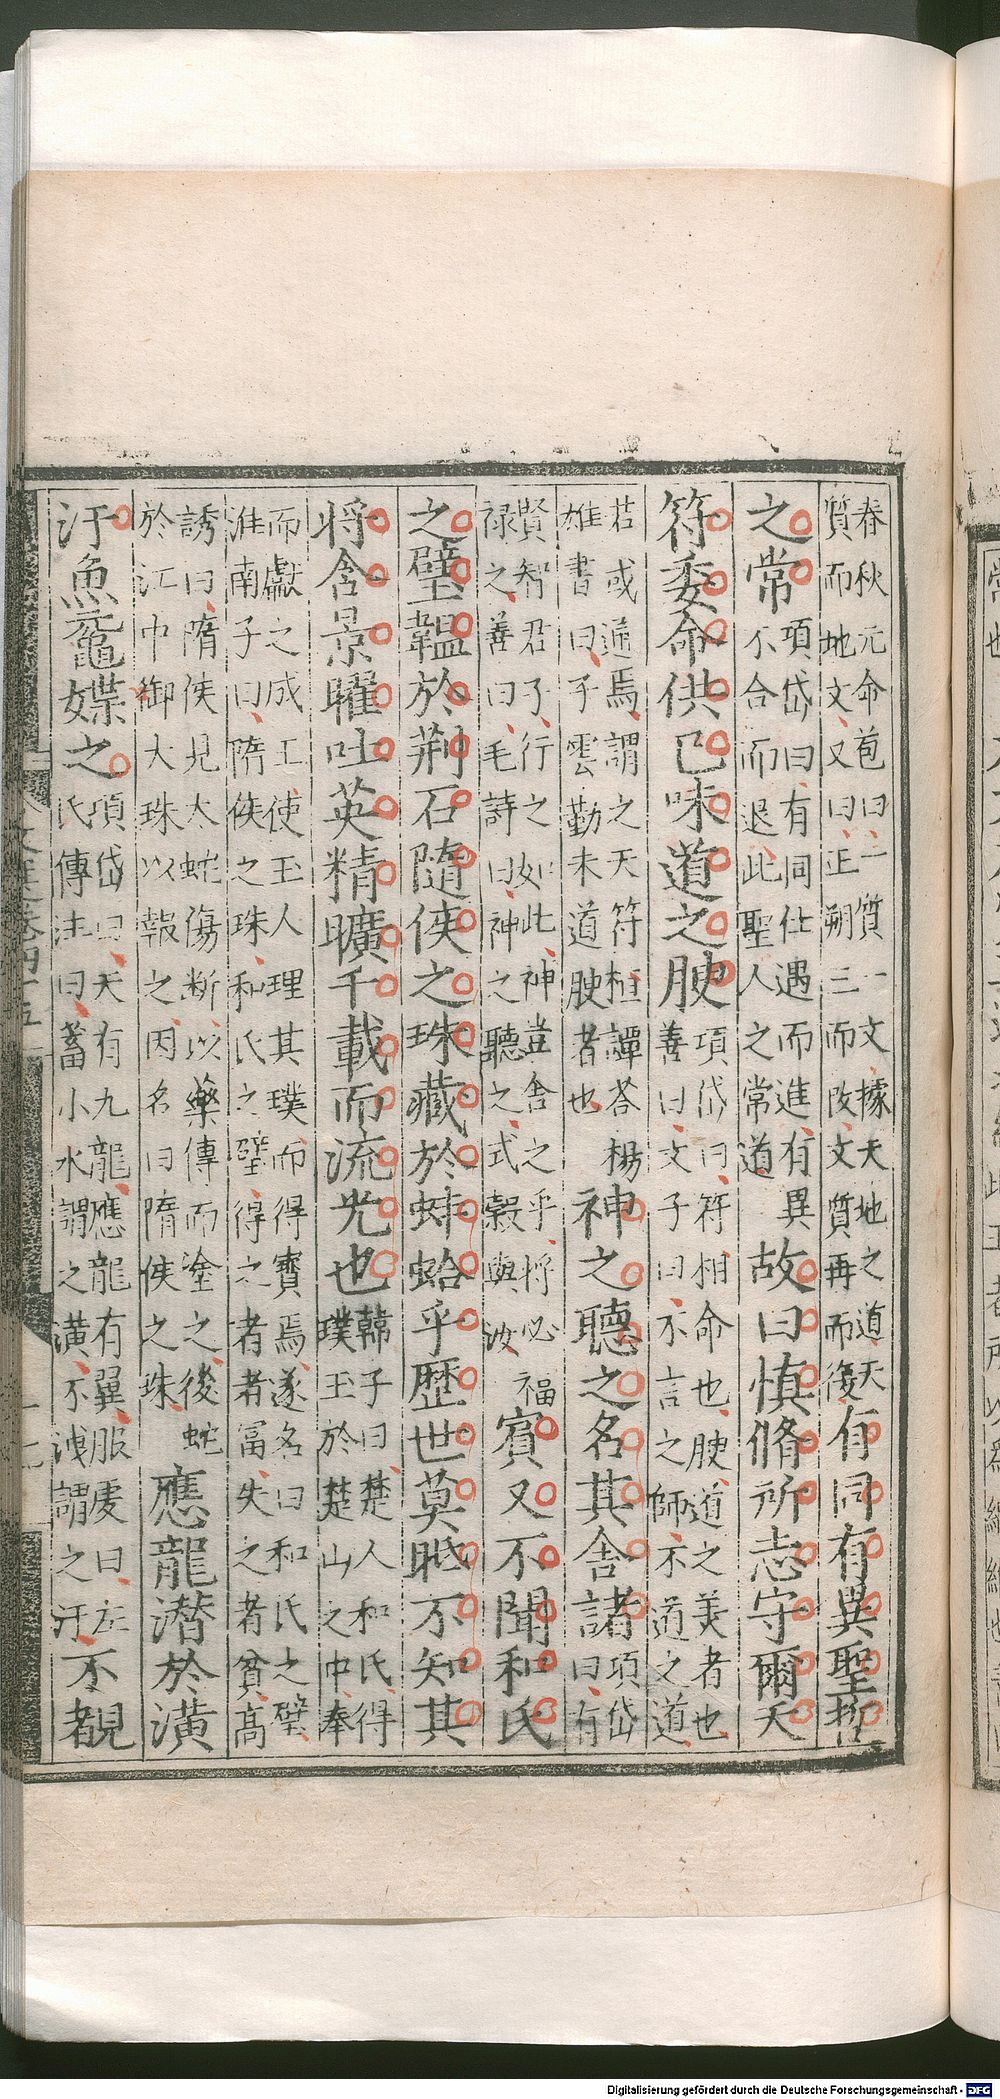 春秋元命苞曰一質一文據天地之道天
質而地文又曰正朔三而改文質再而復有同有異聖哲
之常項岱曰有同仕遇而進有異
不合而退此聖人之常道故曰慎脩所志守爾天
符委命供已味道之腴項岱曰符相命也腴道之美者也
善曰文子曰不言之師不道之道
若或通焉謂之天符桓譚荅楊
雄書曰子雲勤味道腴者也神之聽之名其舍諸項岱曰有
賢智君子行之如此神豈舍之乎將必福
禄之善曰毛詩曰神之聽之式穀與汝賓又不聞和氏
之璧韞於荆石隨侯之珠藏於蚌蛤乎歴世莫眂不知其
将含景曜吐英精曠千載而流光也韓子曰楚人和氏得
璞玉於楚山之中奉
而獻之成王使玉人理其璞而得寶焉遂名曰和氏之璧
淮南子曰隋侯之珠和氏之璧得之者富失之者貧高
誘曰隋侯見大蛇傷断以藥傳而塗之後蛇
於江中御大珠以報之因名曰隋侯之珠應龍潜於潢
汙魚黿媟之項岱曰天有九龍應龍有翼服虔曰左
氏傳注曰蓄小水謂之潢不洩謂之汙不覩者
十七
Digitalisierung gefördert durch die Deutsche Forschungsgemeinschaft - DFG